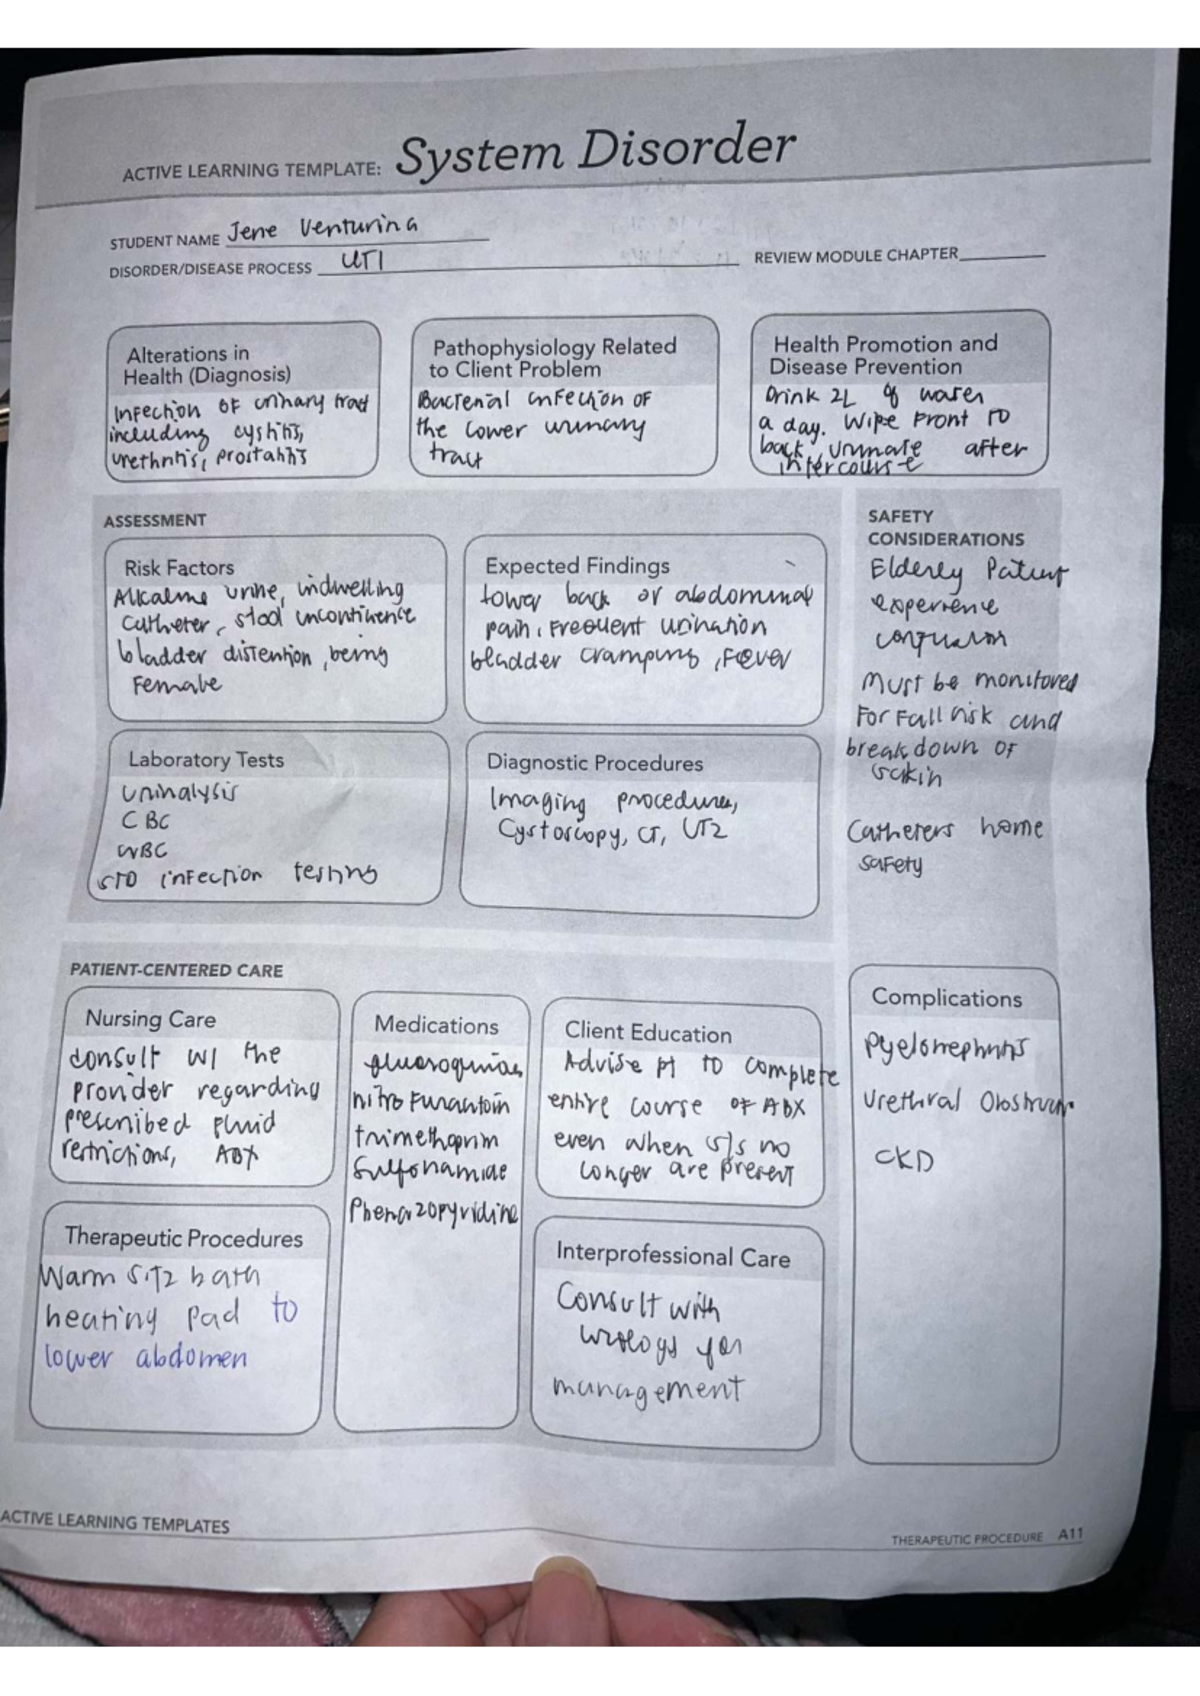 ACTIVE LEARNING TEMPLATE: System Disorder
STUDENT NAME Jene Venturina
DISORDER/DISEASE PROCESS UTI
REVIEW MODULE CHAPTER
Alterations in
Health (Diagnosis)
Infection of urinary tract
including cystitis,
urethritis, prostatitis
Pathophysiology Related
to Client Problem
Bacterial infection of
the lower urinary
tract
Health Promotion and
Disease Prevention
Drink 2L of water
a day. Wipe front to
back, urinate after
intercourse
ASSESSMENT
Risk Factors
Alkaline urine, indwelling
catheter, stool incontinence
bladder distention, being
Female
Expected Findings
lower back or abdominal
pain, Frequent urination
bladder cramping, Fever
Laboratory Tests
urinalysis
CBC
WBC
STD infection testing
Diagnostic Procedures
Imaging procedures,
Cystoscopy, CT,
SAFETY
CONSIDERATIONS
Elderly Patient
experience
confusion
Must be monitored
For Fall risk and
breakdown of
skin
Catheters home
safety
PATIENT-CENTERED CARE
Nursing Care
consult w/ the
provider regarding
prescribed fluid
restrictions, ABX
Medications
nitrofurantoin
trimethoprim
Phenazopyridine
Client Education
Advise pt to complete
entire course of ABX
even when s/s no
longer are present
Therapeutic Procedures
Warm sitz bath
heating pad to
lower abdomen
Interprofessional Care
Consult with
urology for
management
Complications
pyelonephritis
urethral Obstruct.
CKD
ACTIVE LEARNING TEMPLATES
THERAPEUTIC PROCEDURE A11